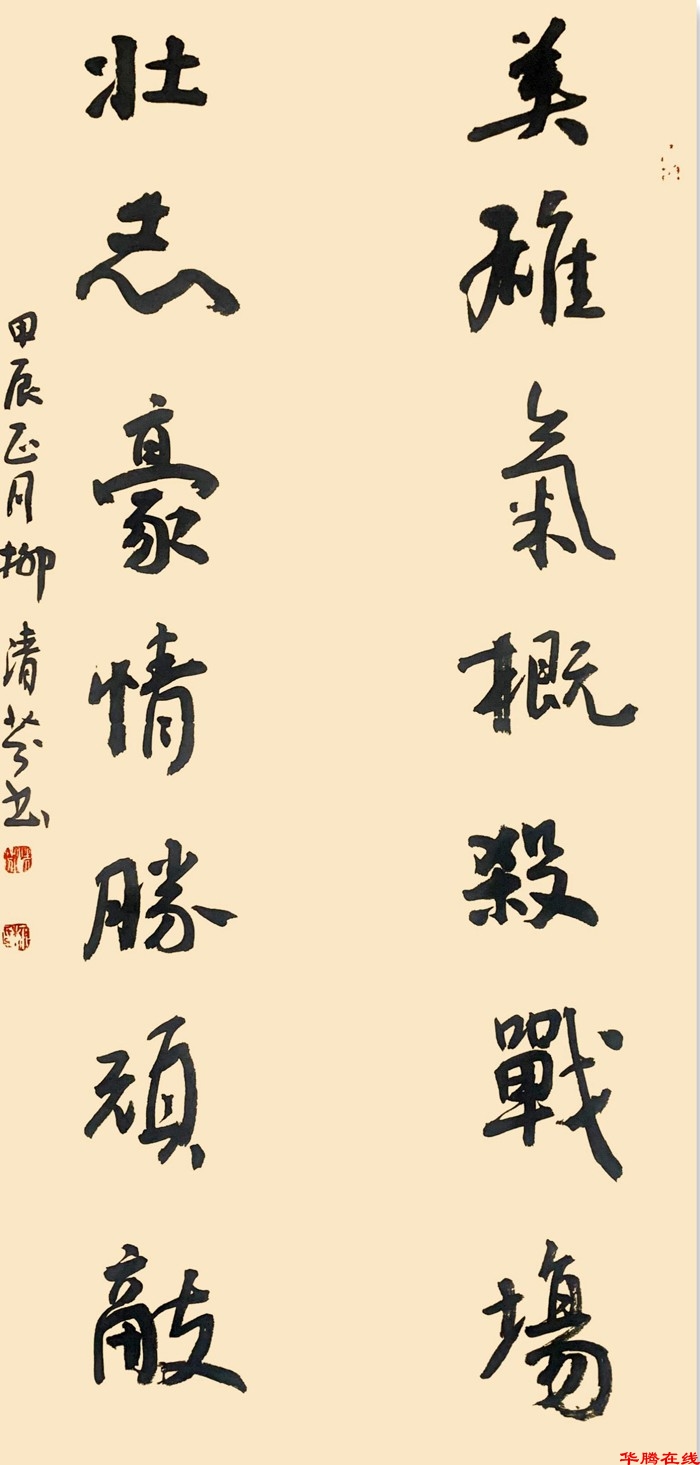 英雄氣概殺戰場
壮志豪情勝頑敵
甲辰正月柳清芬书
华腾在线